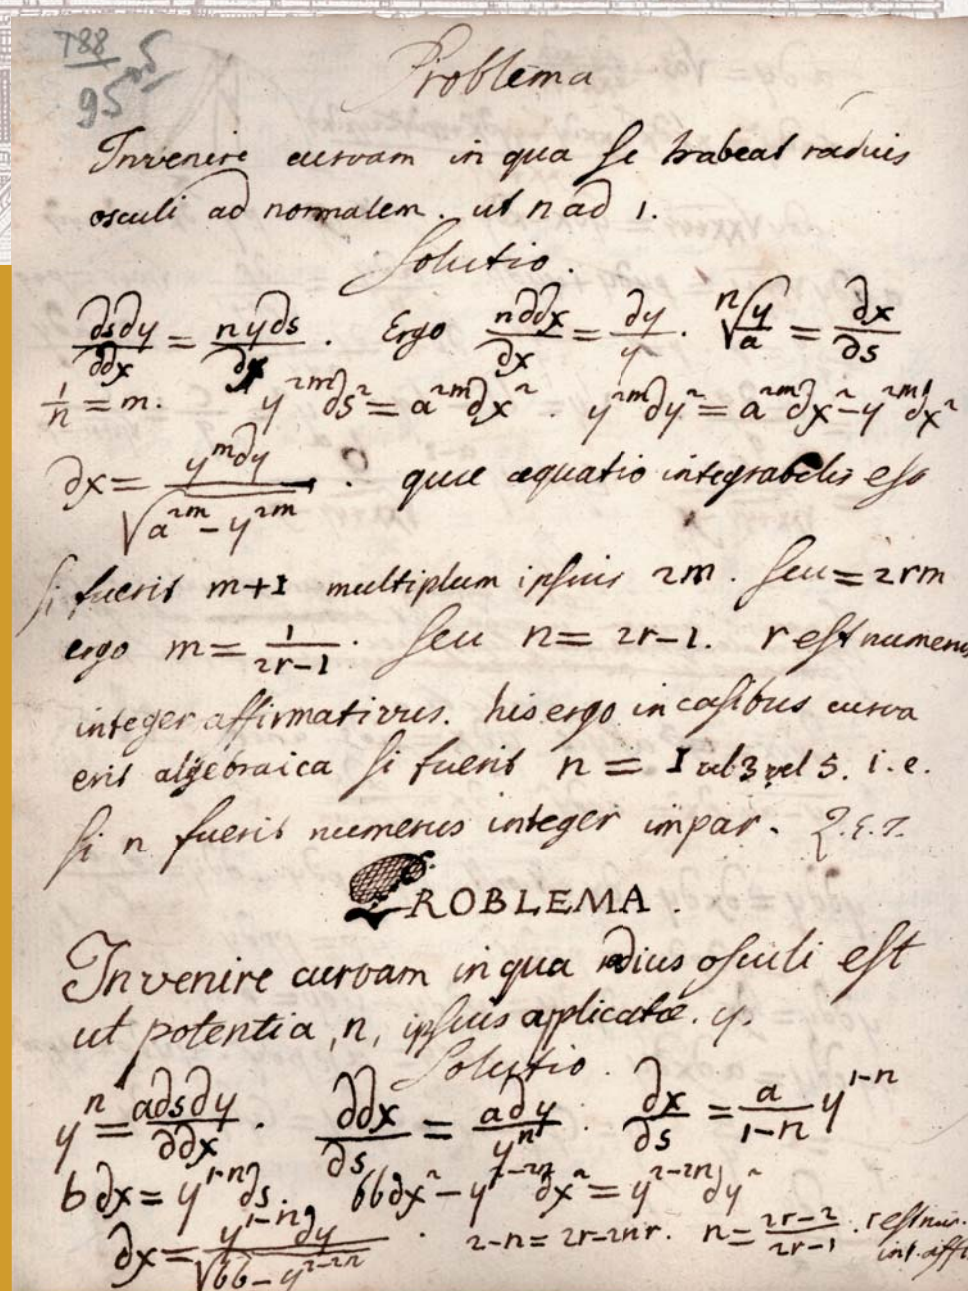 788
95
Problema
Invenire curvam in qua se habeat radius
osculi ad normalem. ut n ad 1.
Solutio.
∂s∂y/∂∂x = ny∂s/∂x. Ergo n∂∂x/∂x = ∂y/y. ⁿ√(y/a) = ∂x/∂s
1/n = m. y^2m ∂s^2 = a^2m ∂x^2. y^2m ∂y^2 = a^2m ∂x^2 - y^2m ∂x^2
∂x = y^m ∂y/√(a^2m - y^2m). quae aequatio integrabilis est
si fuerit m+1 multiplum ipsius 2m. seu = 2rm
ergo m = 1/(2r-1). seu n = 2r-1. r est numerus
integer affirmativus. his ergo in casibus curva
erit algebraica si fuerit n = 1 vel 3 vel 5. i.e.
si n fuerit numerus integer impar. Q.E.I.
PROBLEMA.
Invenire curvam in qua radius osculi est
ut potentia, n, ipsius applicatae. y.
Solutio.
y^n = a∂s∂y/∂∂x. ∂∂x/∂s = a∂y/y^n. ∂x/∂s = a/(1-n) y^(1-n)
b∂x = y^(1-n)∂s. bb∂x^2 - y^(2-2n)∂x^2 = y^(2-2n)∂y^2
∂x = y^(1-n)∂y/√(bb - y^(2-2n)). 2-n = 2r-2nr. n = (2r-2)/(2r-1). r est num.
int. aff.